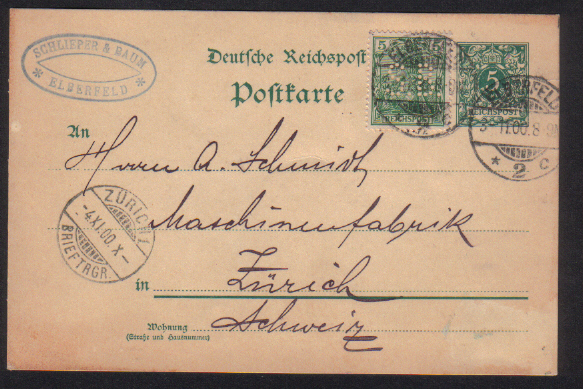 SCHLIEPER & BAUM
* ELBERFELD *
Deutsche Reichspost
Postkarte
5
REICHSPOST
5
REICHSPOST
ELBERFELD
11.00.8
* 2 c
An
Herrn A. Schmidt,
Maschinenfabrik
ZÜRICH 1
-4.XI.00.X-
BRIEFTRGR.
in Zürich
Schweiz
Wohnung
(Straße und Hausnummer)